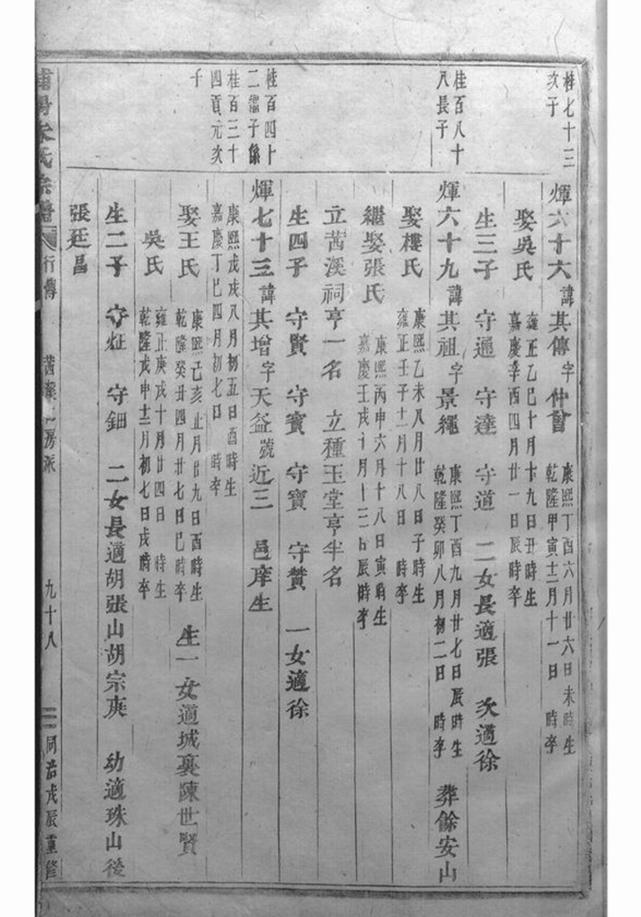 桂七十三
次子
輝六十六諱其傳字仲會
康熙丁酉六月廿六日未時生
乾隆甲寅十二月十一日時卒
娶吳氏
雍正乙巳十月十九日丑時生
嘉慶辛酉四月廿一日辰時卒
生三子 守通 守達 守道 二女長適張 次適徐
桂百八十
八長子
輝六十九諱其祖字景繩
康熙丁酉九月廿七日辰時生
乾隆癸卯八月初二日時卒
葬餘安山
娶樓氏
康熙乙未八月廿八日子時生
雍正壬子十二月十八日時卒
繼娶張氏
康熙丙申六月十八日寅時生
嘉慶壬戌十月十三日辰時卒
立茜溪祠亨一名 立種玉堂亨半名
生四子 守賢 守寶 守寶 守贊 一女適徐
桂百四十
二子係
桂百三十
四貢元次
子
輝七十三諱其增字天益號近三 邑庠生
康熙戊戌八月初五日酉時生
嘉慶丁巳四月初七日時卒
娶王氏
康熙己亥正月廿九日酉時生
乾隆癸丑四月廿七日巳時卒
生一女適城裏陳世賢
吳氏
雍正庚戌十月廿四日時生
乾隆戊申十二月初七日戌時卒
生二子 守炡 守鈿 二女長適胡張山胡宗庚 幼適珠山後
張廷昌
氏宗譜 行傳 茜溪 房派 九十八 同治戊辰重修